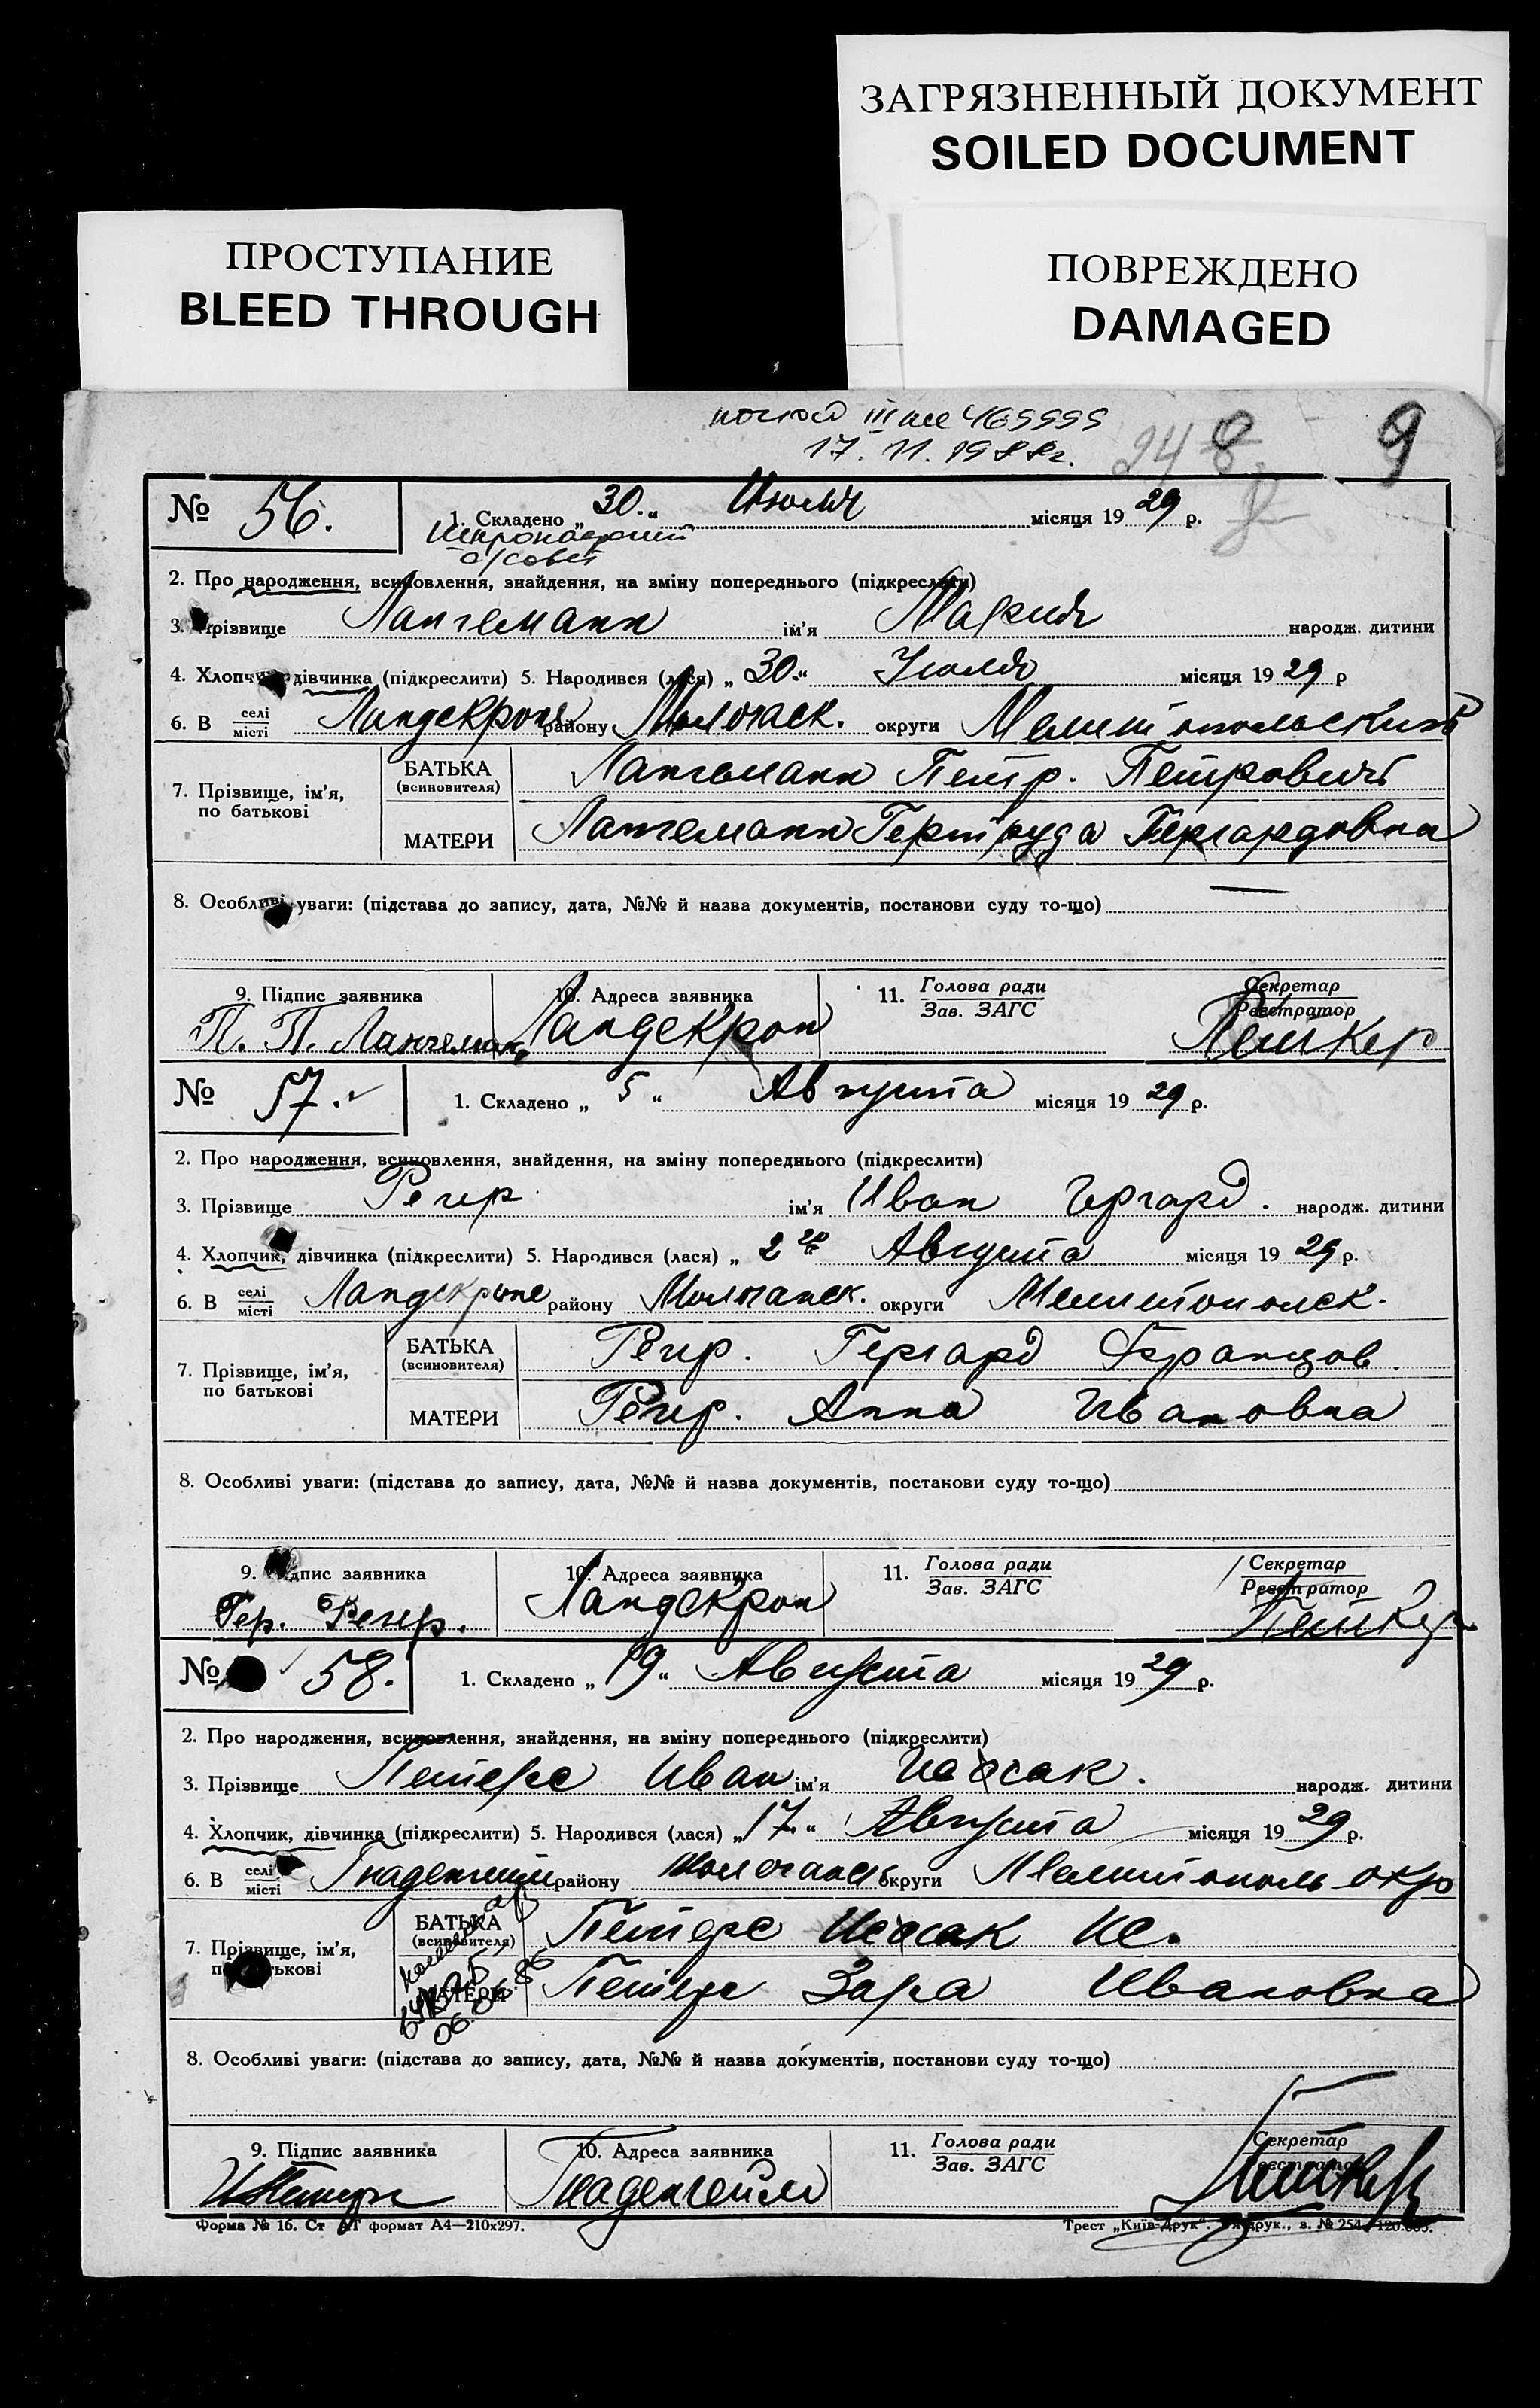 ЗАГРЯЗНЕННЫЙ ДОКУМЕНТ
SOILED DOCUMENT
ПРОСТУПАНИЕ
BLEED THROUGH
ПОВРЕЖДЕНО
DAMAGED
17. 11. 1988г.
24 8 9
№ 56. 1. Складено „ 30. “ Июля місяця 19 29 р.
с/совет
2. Про народження, всиновлення, знайдення, на зміну попереднього (підкреслити)
3. Прізвище Лангеманн ім'я Мария народж. дитини
4. Хлопчик, дівчинка (підкреслити) 5. Народився (лася) „ 30. “ Июля місяця 19 29 р
6. В селі/місті Ландскроне району Молочанск. округи Мелитопольский
7. Прізвище, ім'я, по батькові
БАТЬКА (всиновителя) Лангеманн Петр. Петрович
МАТЕРИ Лангеманн Гертруда Гергардовна
8. Особливі уваги: (підстава до запису, дата, №№ й назва документів, постанови суду то-що) —
9. Підпис заявника 10. Адреса заявника 11. Голова ради/Зав. ЗАГС Секретар/Реєстратор
П. П. Лангеманн Ландскрон
№ 57. 1. Складено „ 5 “ Августа місяця 19 29 р.
2. Про народження, всиновлення, знайдення, на зміну попереднього (підкреслити)
3. Прізвище Регер ім'я Иван Гергард. народж. дитини
4. Хлопчик, дівчинка (підкреслити) 5. Народився (лася) „ 2го Августа місяця 19 29 р.
6. В селі/місті Ландскроне району Молочанск. округи Мелитопольск.
7. Прізвище, ім'я, по батькові
БАТЬКА (всиновителя) Регер. Гергард Францов.
МАТЕРИ Регер. Анна Ивановна
8. Особливі уваги: (підстава до запису, дата, №№ й назва документів, постанови суду то-що)
9. Підпис заявника 10. Адреса заявника 11. Голова ради/Зав. ЗАГС Секретар/Реєстратор
Гер. Регер. Ландскрон
№ 58. 1. Складено „ 19 “ Августа місяця 19 29 р.
2. Про народження, всиновлення, знайдення, на зміну попереднього (підкреслити)
3. Прізвище Петерс Иван ім'я Исаак. народж. дитини
4. Хлопчик, дівчинка (підкреслити) 5. Народився (лася) „ 17. “ Августа місяця 19 29 р.
6. В селі/місті Гнаденгейм району Молочанск округи Мелитополь окр
7. Прізвище, ім'я, по батькові
БАТЬКА (всиновителя) Петерс Исаак Ис.
МАТЕРИ Петерс Зара Ивановна
8. Особливі уваги: (підстава до запису, дата, №№ й назва документів, постанови суду то-що)
9. Підпис заявника 10. Адреса заявника 11. Голова ради/Зав. ЗАГС Секретар
И Петерс Гнаденгейм
Форма № 16. Ст АТ формат А4—210х297. Трест „Київ-Друк“.